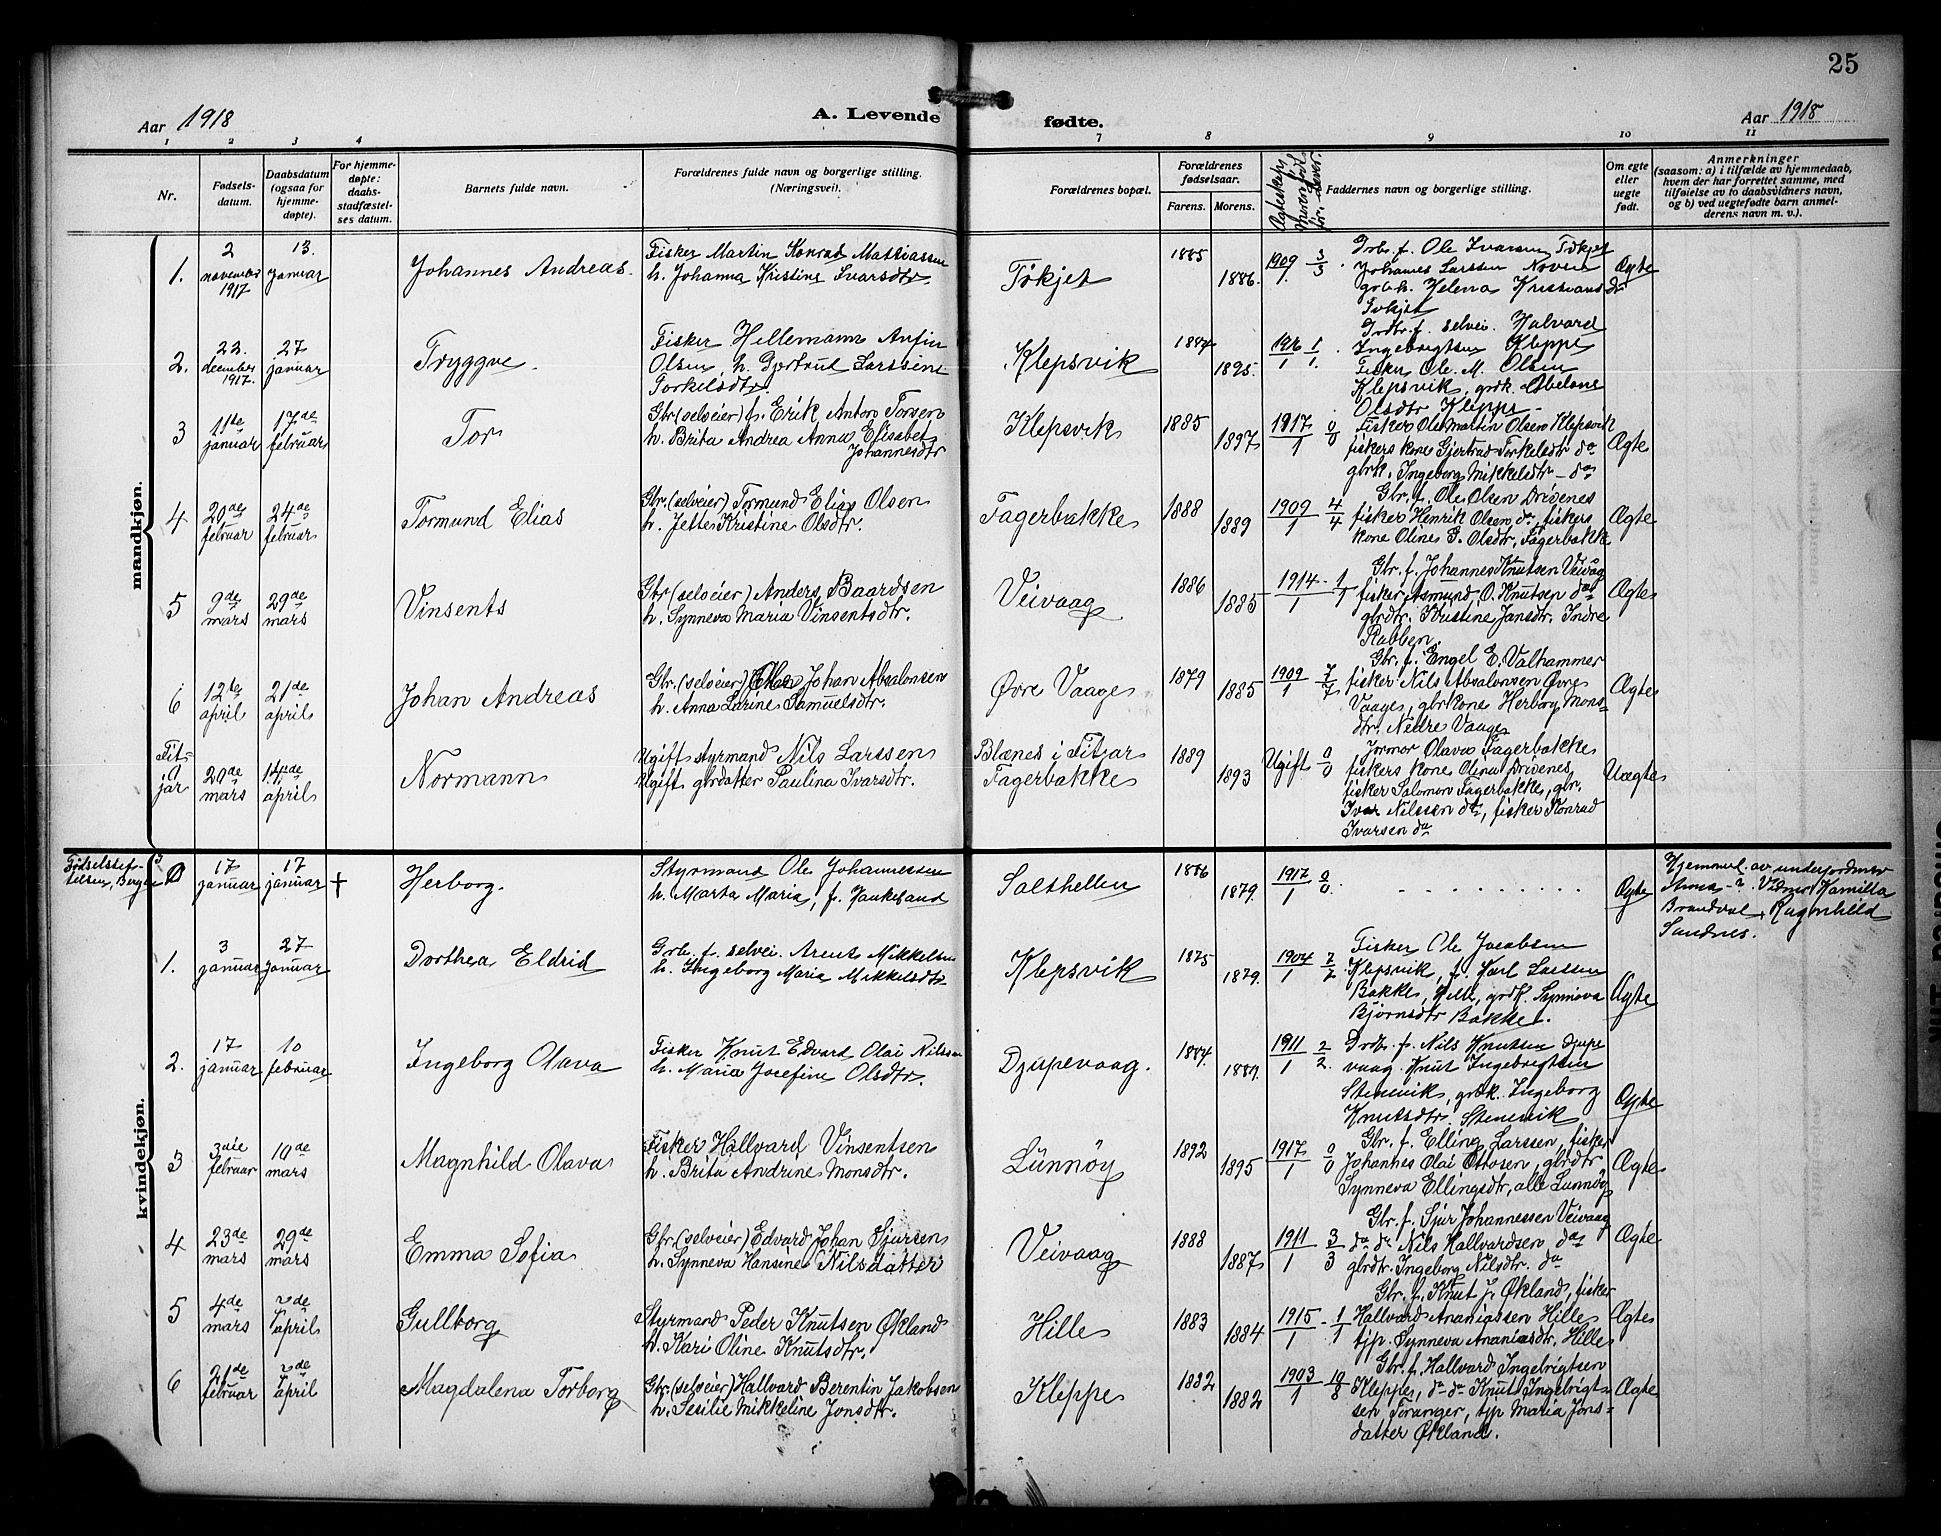 25
Aar 1918
A. Levende fødte.
Aar 1918
1 2 3 4 7 8 9 10 11
Nr.
Fødsels-
datum.
Daabsdatum
(ogsaa for
hjemme-
døpte).
For hjemme-
døpte:
daabs-
stadfæstel-
ses datum.
Barnets fulde navn.
Forældrenes fulde navn og borgerlige stilling.
(Næringsvei).
Forældrenes bopæl.
Forældrenes
fødselsaar.
Farens. Morens.
Faddernes navn og borgerlige stilling.
Om egte
eller
uegte
født.
Anmerkninger
(saasom: a) i tilfælde av hjemmedaab,
hvem der har forrettet samme, med
tilføielse av to daabsvidners navn,
og b) ved uegtefødte barn anmel-
derens navn m. v.).
mandkjøn.
1.
2
november
1917
13.
januar
Johannes Andreas.
Fisker Martin Konrad Mattiassen
h. Johanna Kristine Ivarsdtr.
Tøkjet
1885
1886.
1909 3
1. 3
Grb. f. Ole Ivarsen Tøkjet
Johannes Larssen
grbk. Helena Kristiansd
Ægte
2.
22.
december
1917.
27
januar
Tryggve.
Fisker Hellemann Anfin
Olsen, h. Gjertrud Larssine
Torkelsdtr.
Klepsvik
1895.
1916 1
1 1.
Grdbr. f. selvei. Halvard
Ingebrigtsen Kleppe
Fisker Ole M. Olsen
Klepsvik, grbk. Abelone
Olsdtr Kleppe
3
11te
januar
17de
februar
Tor
Gbr. (selveier) f. Erik Anton Torsen
h. Brita Andrea Anna Elisabet
Johannesdtr
Klepsvik
1885
1897
1917 0
1 0
Fisker Ole Martin Olsen Klepsvik
fiskers kone Gjertrud Torkelsdtr do
gbrk. Ingeborg Mikkelsdtr - do
Ægte
4
20de
februar
24de
februar
Tormund Elias
Gbr. (selveier) Tormund Elias Olsen
h. Jette Kristine Olsdtr.
Fagerbakke
1888
1889
1909 4
1 4
Gbr. f. Ole Olsen Drivenes
fisker Henrik Olsen do, fiskers
kone Oline G. Olsdtr, Fagerbakke
Ægte
5
9de
mars
29de
mars
Vinsents
Gbr (selveier) Anders Baardsen
h. Synneva Maria Vinsentsdtr.
Veivaag
1886
1885
1914 - 1
1 1
Gbr. f. Johannes Knutsen Veivåg
fisker Asmund O. Knutsen do
gbrdtr. Kristine Jansdtr. Indre
Rabben.
Ægte
6
12te
april
21de
april
Johan Andreas
Gbr. (selveier) Johan Absalonsen
h. Anna Larine Samuelsdtr.
Øvre Vaage
1879
1885
1909 7
1 7
Gbr. f. Engel E. Valhammer
fisker Nils Absalonsen Øvre
Vaage, gbrkone Herborg Mons-
dtr. Nedre Vaage
Ægte
Fit-
jar
20de
mars
14de
april
Normann
Ugift styrmand Nils Larssen
Ugift gbrdatter Paulina Ivarsdtr.
Blænes i Fitjar
Fagerbakke
1889
1893
Ugift 0
0
Jormor Olava Fagerbakke
fiskers kone Olina Drivenes
fisker Salomon Fagerbakke, gbr.
Ivar Nilssen do, fisker Konrad
Ivarsen do
Uægte
kvindekjøn.
0
17
januar
17
januar
†
Herborg.
Styrmand Ole Johannessen
h. Marta Maria, f. Haukeland
Salthellen
1886
1879.
1917 0
1 0
Ægte
Hjemmed. av underjordmor
Kamilla
Brandval, Ragnhild
Sandnes.
1.
3
januar
27
januar
Dorthea Eldrid
Grb. f. selvei. Arent Mikkelsen
h. Ingeborg Maria Mikkelsdtr
Klepsvik
1875
1879.
1904 2
1 2
Fisker Ole Jacobsen
Klepsvik, f. Karl Larssen
Bakke, Hille, grbk. Synnøva
Bjørnsdtr Bakke.
Ægte
2.
17
januar
10
februar
Ingeborg Olava
Fisker Knut Edvard Olai Nilssen
h. Maria Josefine Olsdtr.
Djupevaag.
1884.
1889.
1911 2
1 2.
Grdb. f. Nils Knutsen Djupe
vaag. Knut Ingebrigtsen
Stenevik, grbk. Ingeborg
Knutsdtr. Stenevik
Ægte
3
3die
februar
10de
mars
Magnhild Olava
Fisker Hallvard Vinsentsen
h. Brita Andrine Monsdtr.
Lünnøy
1892
1895
1917 0
1 0
Gbr. f. Elling Larssen, fisker
Johannes Olai Ottosen, gbrdtr
Synneva Ellingsdtr, alle Lunnøy
Ægte
4
23de
mars
29de
mars
Emma Sofia
Gbr. (selveier) Edvard Johan Sjursen
h. Synneva Hansine Nilsdatter
Veivaag
1888
1887
1911 3
1 3
Gbr. f. Sjur Johannessen Veivaag
do do Nils Hallvardsen do
gbrdtr. Ingeborg Nilsdtr. do
Ægte
5
4de
mars
april
Gullborg
Styrmand Peder Knutsen Økland
h. Kari Oline Knutsdtr.
Hille
1883
1884
1915 - 1
1 1
Gbr. f. Knut J. Økland, fisker
Hallvard Ananiassen Hille
tjp. Synneva Ananiasdtr, Hille
Ægte
6
21de
februar
april
Magdalena Torborg
Gbr. (selveier) Hallvard Berentin Jakobsen
h. Sesilie Mikkeline Jonsdtr.
Kleppe
1882
1882
1903 10
1 8
Gbr. f. Hallvard Ingebrigtsen
Kleppe, do do Knut Ingebrigt-
sen Toranger, tjp Maria Jons-
datter Økland.
Ægte